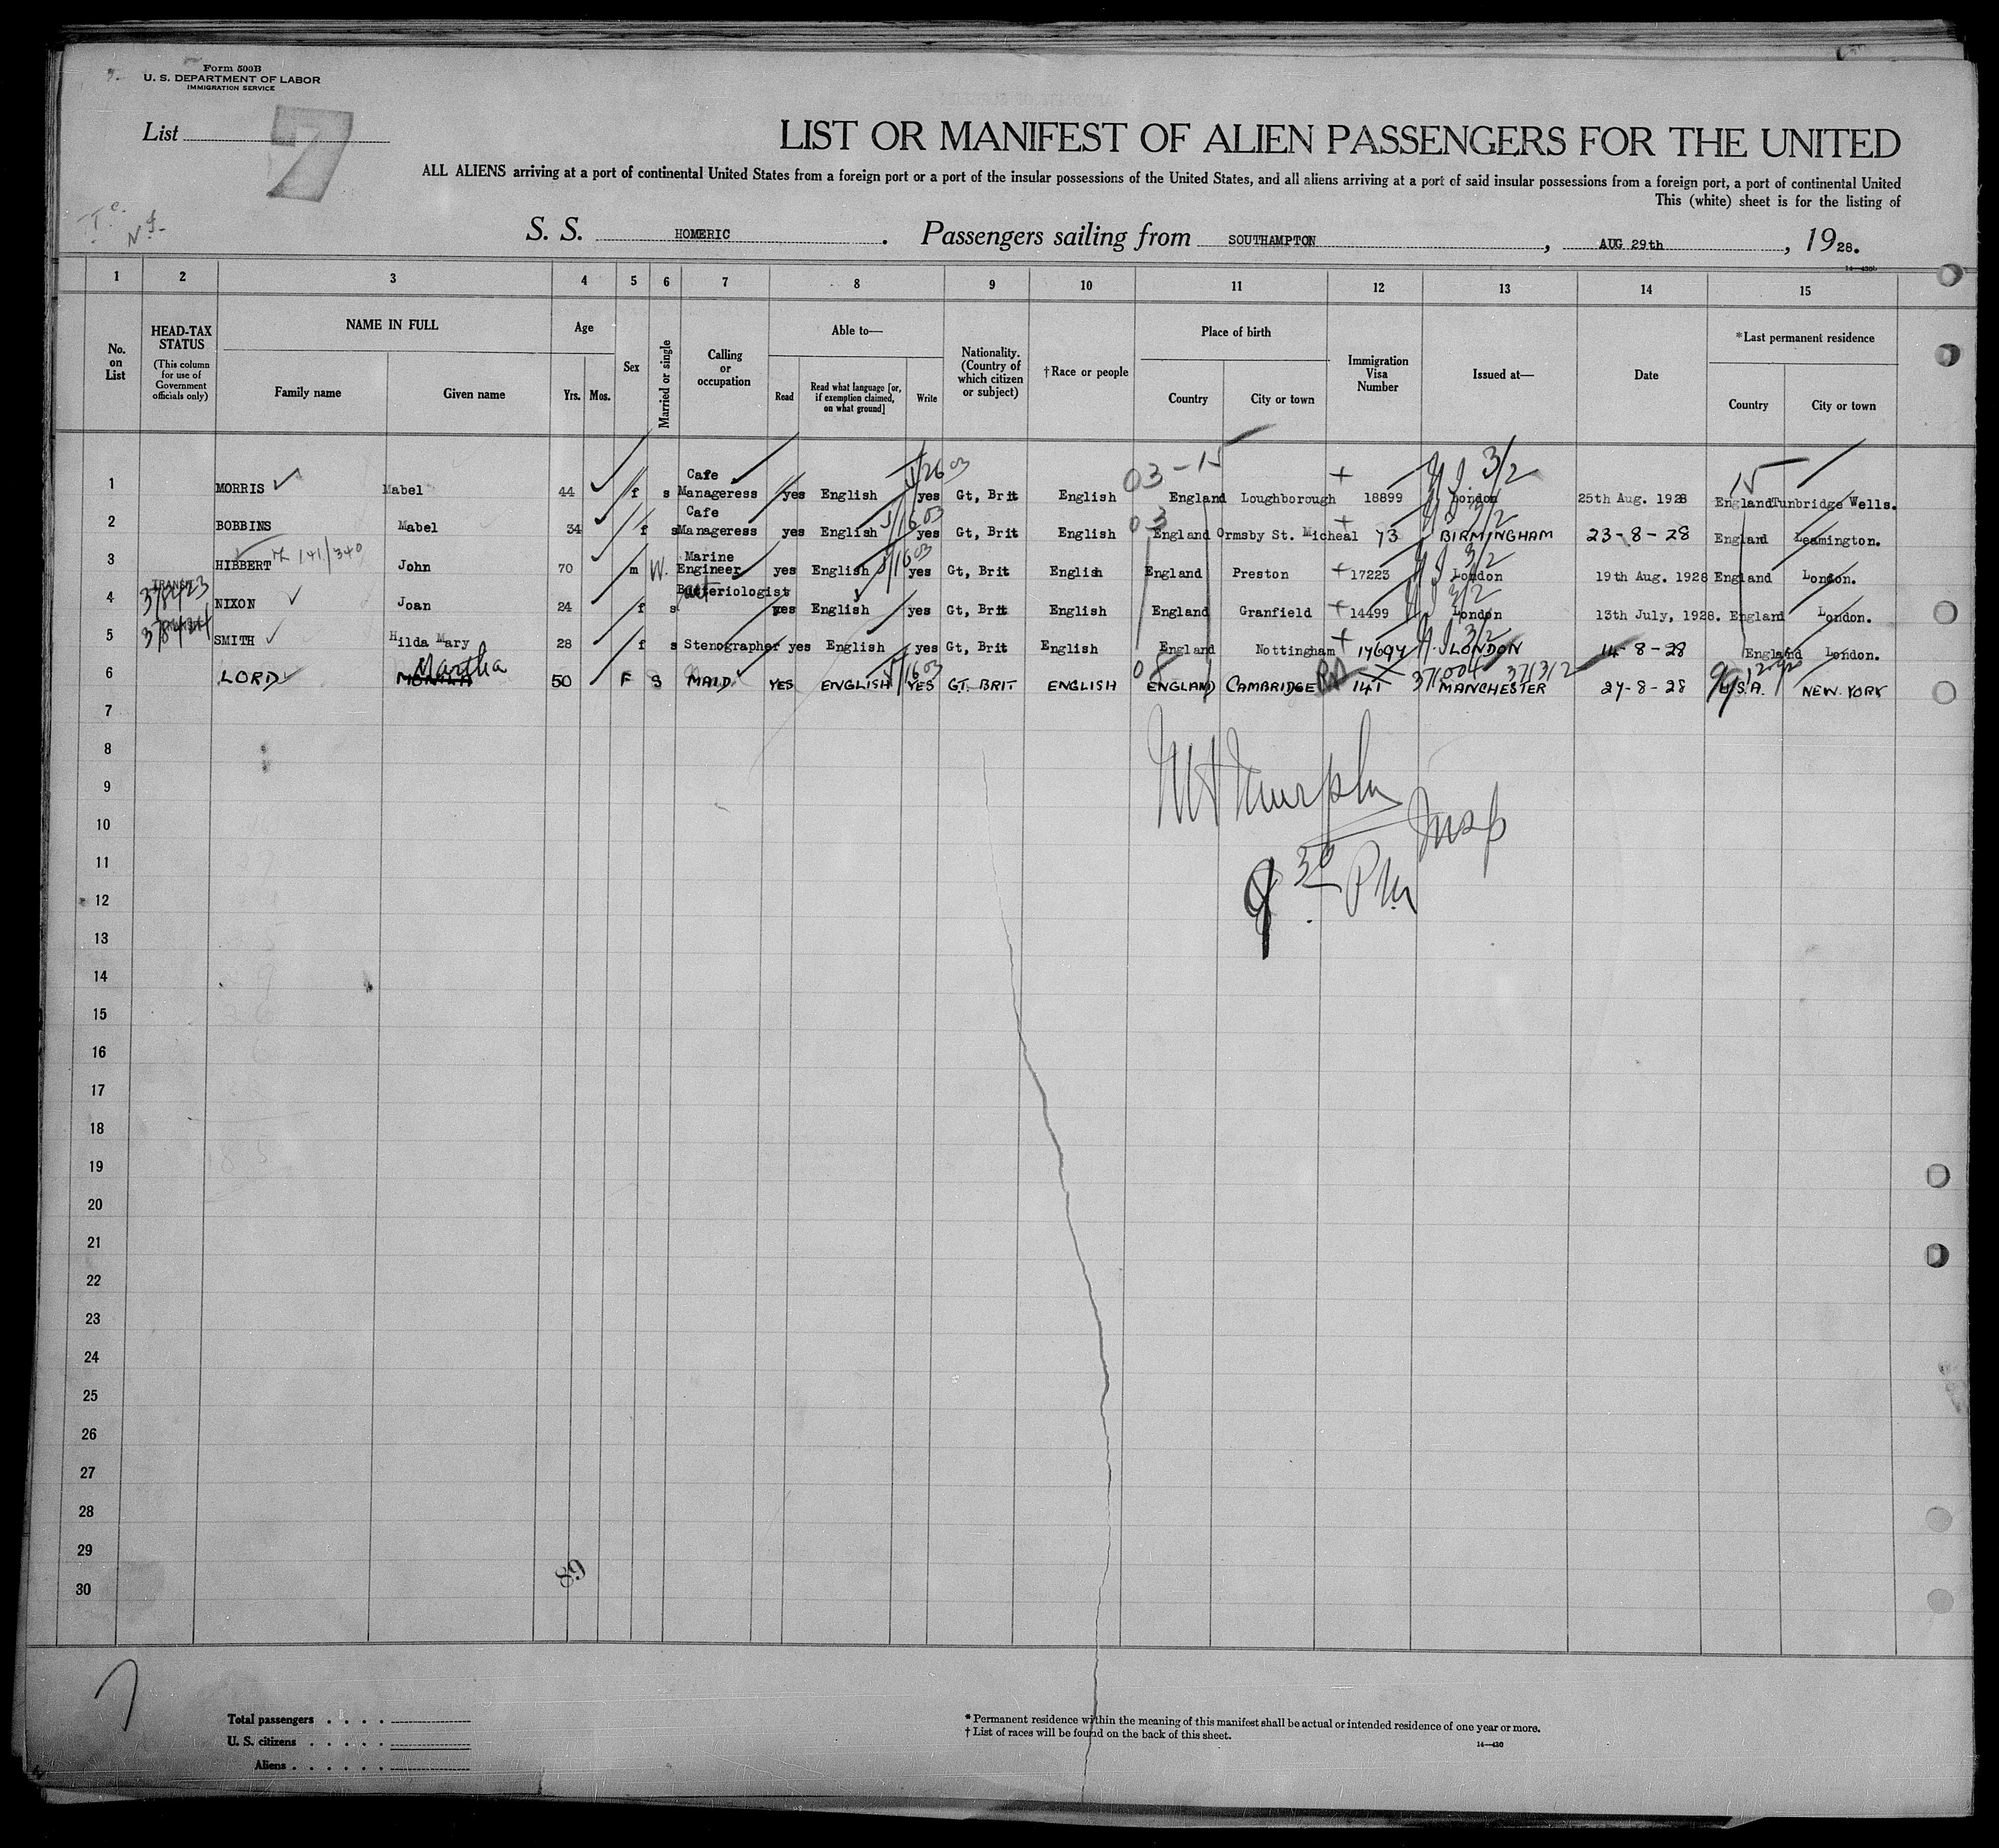 Form 500B
U. S. DEPARTMENT OF LABOR
IMMIGRATION SERVICE
List 7
LIST OR MANIFEST OF ALIEN PASSENGERS FOR THE UNITED
ALL ALIENS arriving at a port of continental United States from a foreign port or a port of the insular possessions of the United States, and all aliens arriving at a port of said insular possessions from a foreign port, a port of continental United
This (white) sheet is for the listing of
S. S. HOMERIC . Passengers sailing from SOUTHAMPTON , AUG 29th , 1928.
1 2 3 4 5 6 7 8 9 10 11 12 13 14 15
No. on List
HEAD-TAX STATUS
(This column for use of Government officials only)
NAME IN FULL
Family name Given name
Age
Yrs. Mos.
Sex
Married or single
Calling or occupation
Able to—
Read
Read what language [or, if exemption claimed, on what ground]
Write
Nationality. (Country of which citizen or subject)
†Race or people
Place of birth
Country City or town
Immigration Visa Number
Issued at—
Date
*Last permanent residence
Country City or town
1 MORRIS Mabel 44 f s Cafe Manageress yes English yes Gt, Brit English England Loughborough 18899 London 25th Aug. 1928 England Tunbridge Wells.
2 BOBBINS Mabel 34 f s Cafe Manageress yes English yes Gt, Brit English England Ormsby St. Micheal 73 BIRMINGHAM 23-8-28 England Leamington.
3 HIBBERT 141/340 John 70 m W. Marine Engineer yes English yes Gt, Brit English England Preston 17223 London 19th Aug. 1928 England London.
4 TRANSIT 378423 NIXON Joan 24 f s Bacteriologist yes English yes Gt, Brit English England Granfield 14499 London 13th July, 1928. England London.
5 378424 SMITH Hilda Mary 28 f s Stenographer yes English yes Gt, Brit English England Nottingham 17697 LONDON 14-8-28 England London.
6 LORD Martha 50 F S MAID YES ENGLISH YES GT. BRIT ENGLISH ENGLAND CAMBRIDGE 141 MANCHESTER 27-8-28 U.S.A. NEW YORK
7
8
9
10
11
12
13
14
15
16
17
18
19
20
21
22
23
24
25
26
27
28
29
30
Murphy
Insp
9 30 PM
89
Total passengers . . . .
U. S. citizens . . . . .
Aliens . . . . . .
* Permanent residence within the meaning of this manifest shall be actual or intended residence of one year or more.
† List of races will be found on the back of this sheet.
14—430